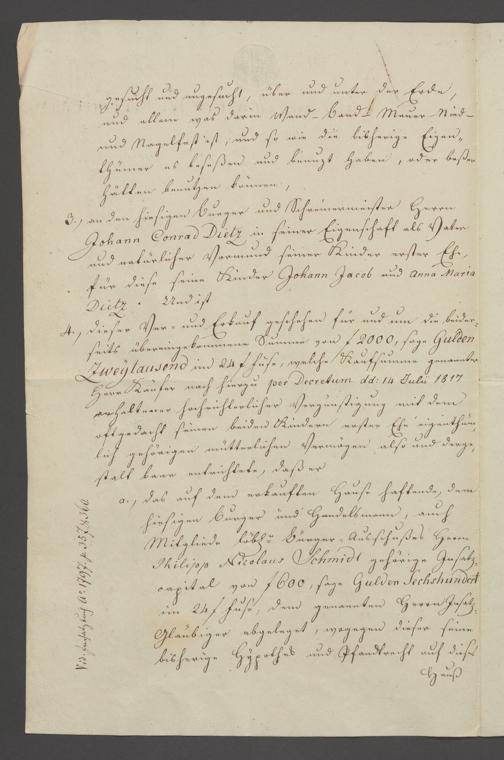 gesucht und ungesucht, über und unter der Erde,
und allem was darin Wand- Band- Mauer- Nied-
und Nagelfest ist, und so wie die bisherige Eigen„
thümer es beseßen und benuzt haben, oder beßer
hätten benutzen können,
3., an den hiesigen Burger und Schreinermeister Herrn
Johann Conrad Dietz in seiner Eigenschaft als Vater
und natürlicher Vormund seiner Kinder erster Ehe,
für diese seine Kinder Johann Jacob und Anna Maria
Dietz. Und ist
4., dieser Ver- und Erkauf geschehen für und um die beider-
seits übereingekommene Summe von f 2000, sage Gulden
Zweytausend im 24 f fuse, welche Kaufsumme genannter
Herr Käufer nach hierzu per Decretum dd: 14 Julii 1817
erhaltener hochrichterlicher Vergünstigung mit dem
oftgedacht seinen beiden Kindern erster Ehe eigenthüm„
lich gehörigen mütterlichen Vermögen also und derge„
stalt baar entrichtete, daß er
a., das auf dem erkauften Hause haftende, dem
hiesigen Burger und Handelsmann, auch
Mitgliede löbl: Burger-Ausschußes Herrn
Philipp Nicolaus Schmidt gehörige Insatz„
capital von f 600, sage Gulden Sechshundert
im 24 f fuse, dem genannten Herrn Insatz„
Gläubiger abgeleget, wogegen dieser seine
bisherige Hypothek und Pfandrecht auf dieses
Hauß